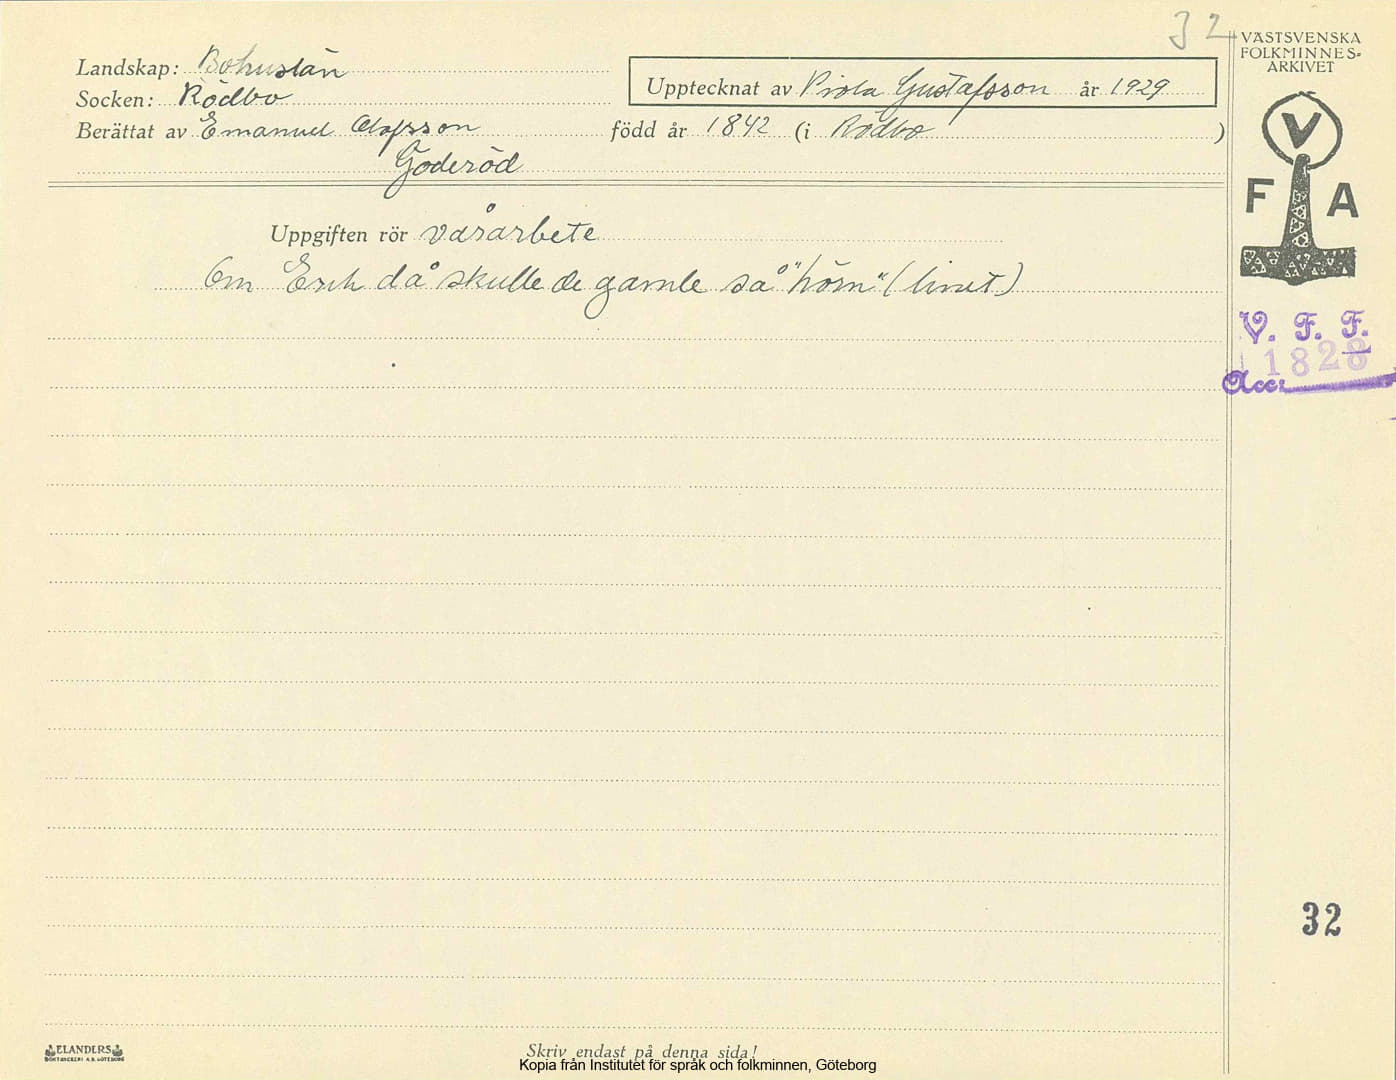 32
VÄSTSVENSKA
FOLKMINNES-
ARKIVET
Landskap: Bohuslän
Socken: Rödbo
Upptecknat av Viola Gustafsson år 1929
Berättat av Emanuel Olofsson född år 1842 (i Rödbo )
Goderöd
V
F A
Uppgiften rör vårarbete
Om Erik då skulle de gamle så "hörn" (linet)
V. F. F.
1828
Acc:
32
ELANDERS
BOKTRYCKERI A.B. GÖTEBORG
Skriv endast på denna sida!
Kopia från Institutet för språk och folkminnen, Göteborg